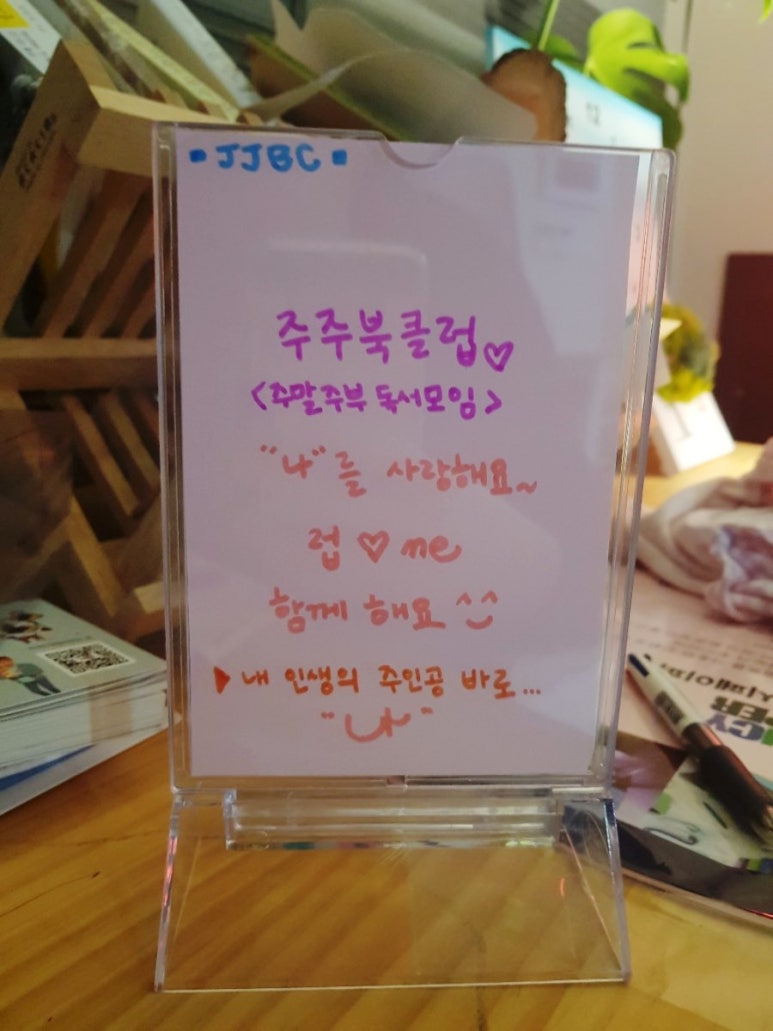 ▪JJBC▪
주주북클럽♡
<주말주부 독서모임>
"나"를 사랑해요~
럽♡me
함께 해요 ^^
▶내 인생의 주인공 바로...
"나"